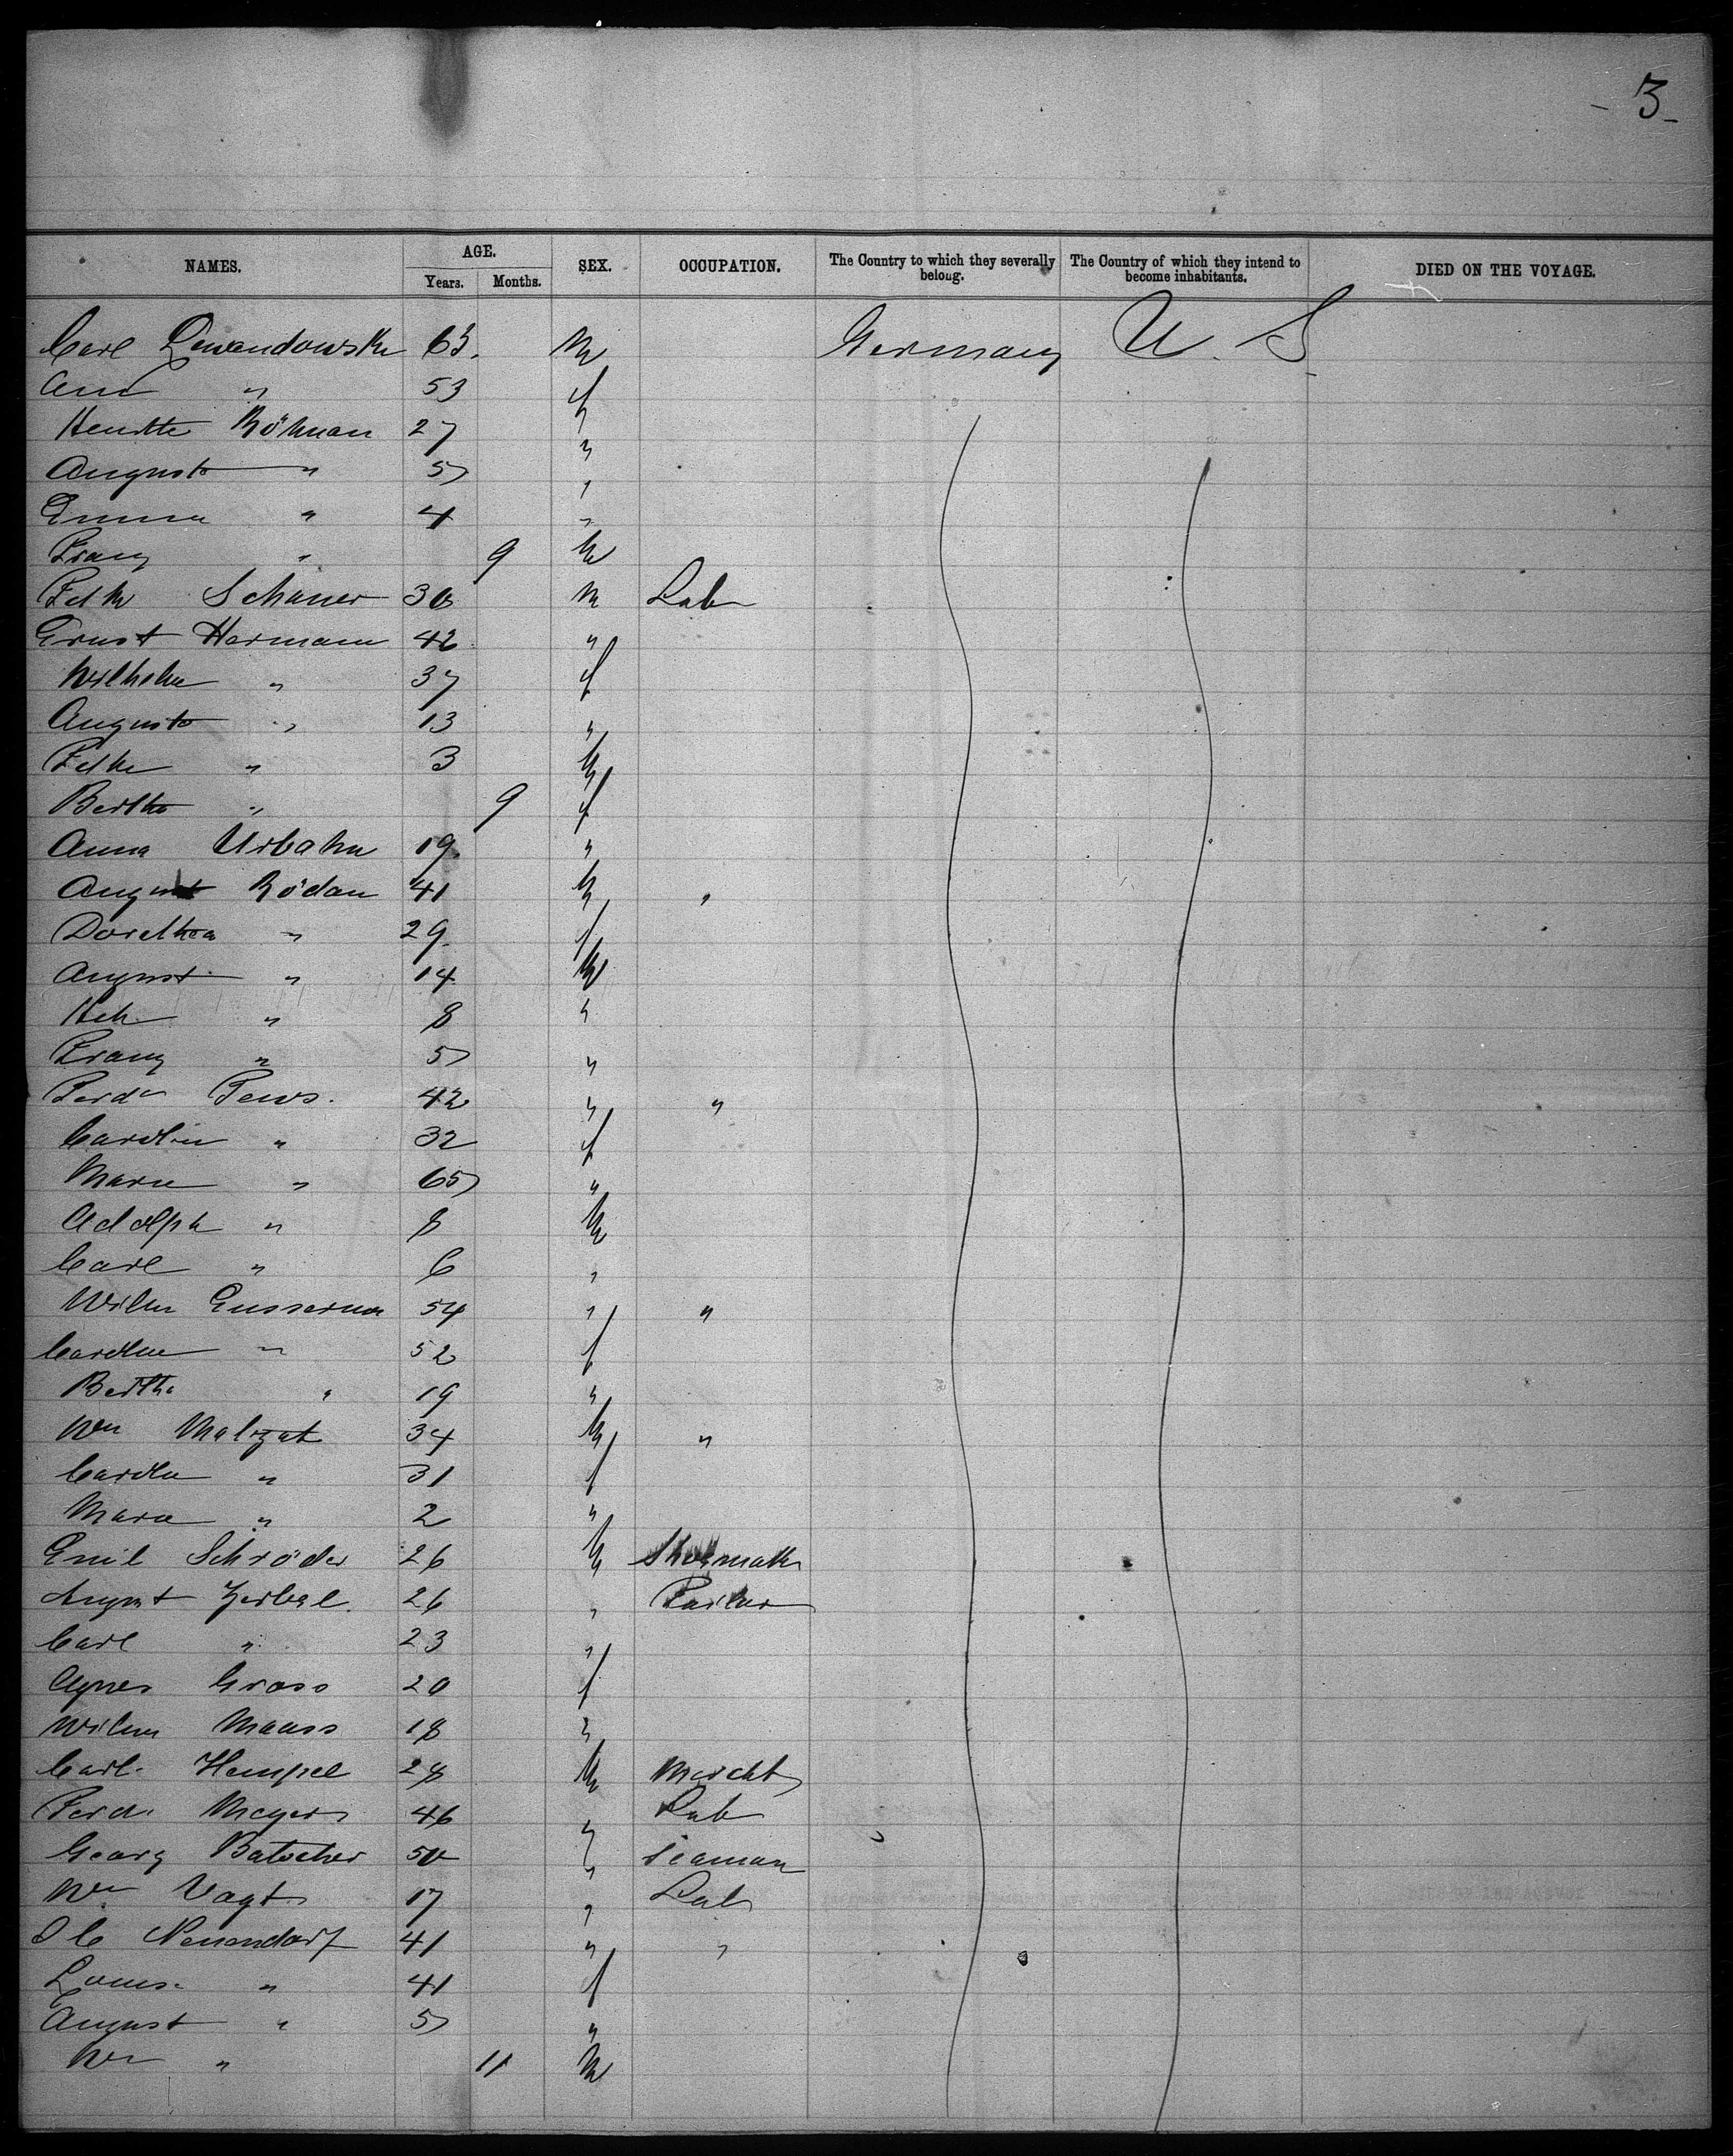 - 3 -
NAMES. AGE. SEX. OCCUPATION. The Country to which they severally belong. The Country of which they intend to become inhabitants. DIED ON THE VOYAGE.
Years. Months.
Carl Lewandowski 63. M Germany U. S.
Ann " 53 f
Henrtte Röhman 27 "
Auguste " 5 "
Emma " 4 "
Franz " 9 M
Fdk Schauer 30 M Lab
Ernst Hermann 42 "
Wilhelm " 37 f
Auguste " 13 "
Fdke " 3 M
Bertha " 9 f
Anna Urbahn 19. "
August Rödan 41 M "
Dorethea " 29. f
August " 14 M
Hch " 8 "
Franz " 5 "
Ferdn Tews. 42 " "
Carolin " 32 f
Marie " 65 "
Adolph " 8 M
Carl " 6 "
Wilm 54 " "
Caroline " 52 f
Bertha " 19 "
Wm Malzat 34 M "
Carolin " 31 f
Marie " 2 "
Emil Schröder 26 M Shoemak
August Zerbel. 26 " Tailor
Carl " 23 "
Agnes Gross 20 f
Wilm Maass 18 "
Carl Hempel 28 M Mercht
Ferd. Meyer 46 " Lab
Georg Batscher 50 " Seaman
Wm Vogt 17 " Lab
Neuendorf 41 " "
Louis. " 41 f
August " 5 "
Wm " 11 M